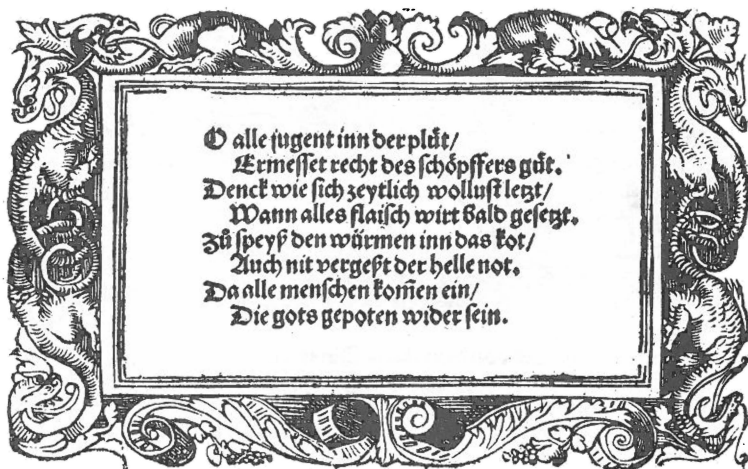 O alle jugent inn der plůt/
Ermesset recht des schöpffers gůt.
Denck wie sich zeytlich wollust letzt/
Wann alles flaisch wirt bald gesetzt.
Zů speyß den würmen inn das kot/
Auch nit vergeßt der helle not.
Da alle menschen kom̄en ein/
Die gots gepoten wider sein.